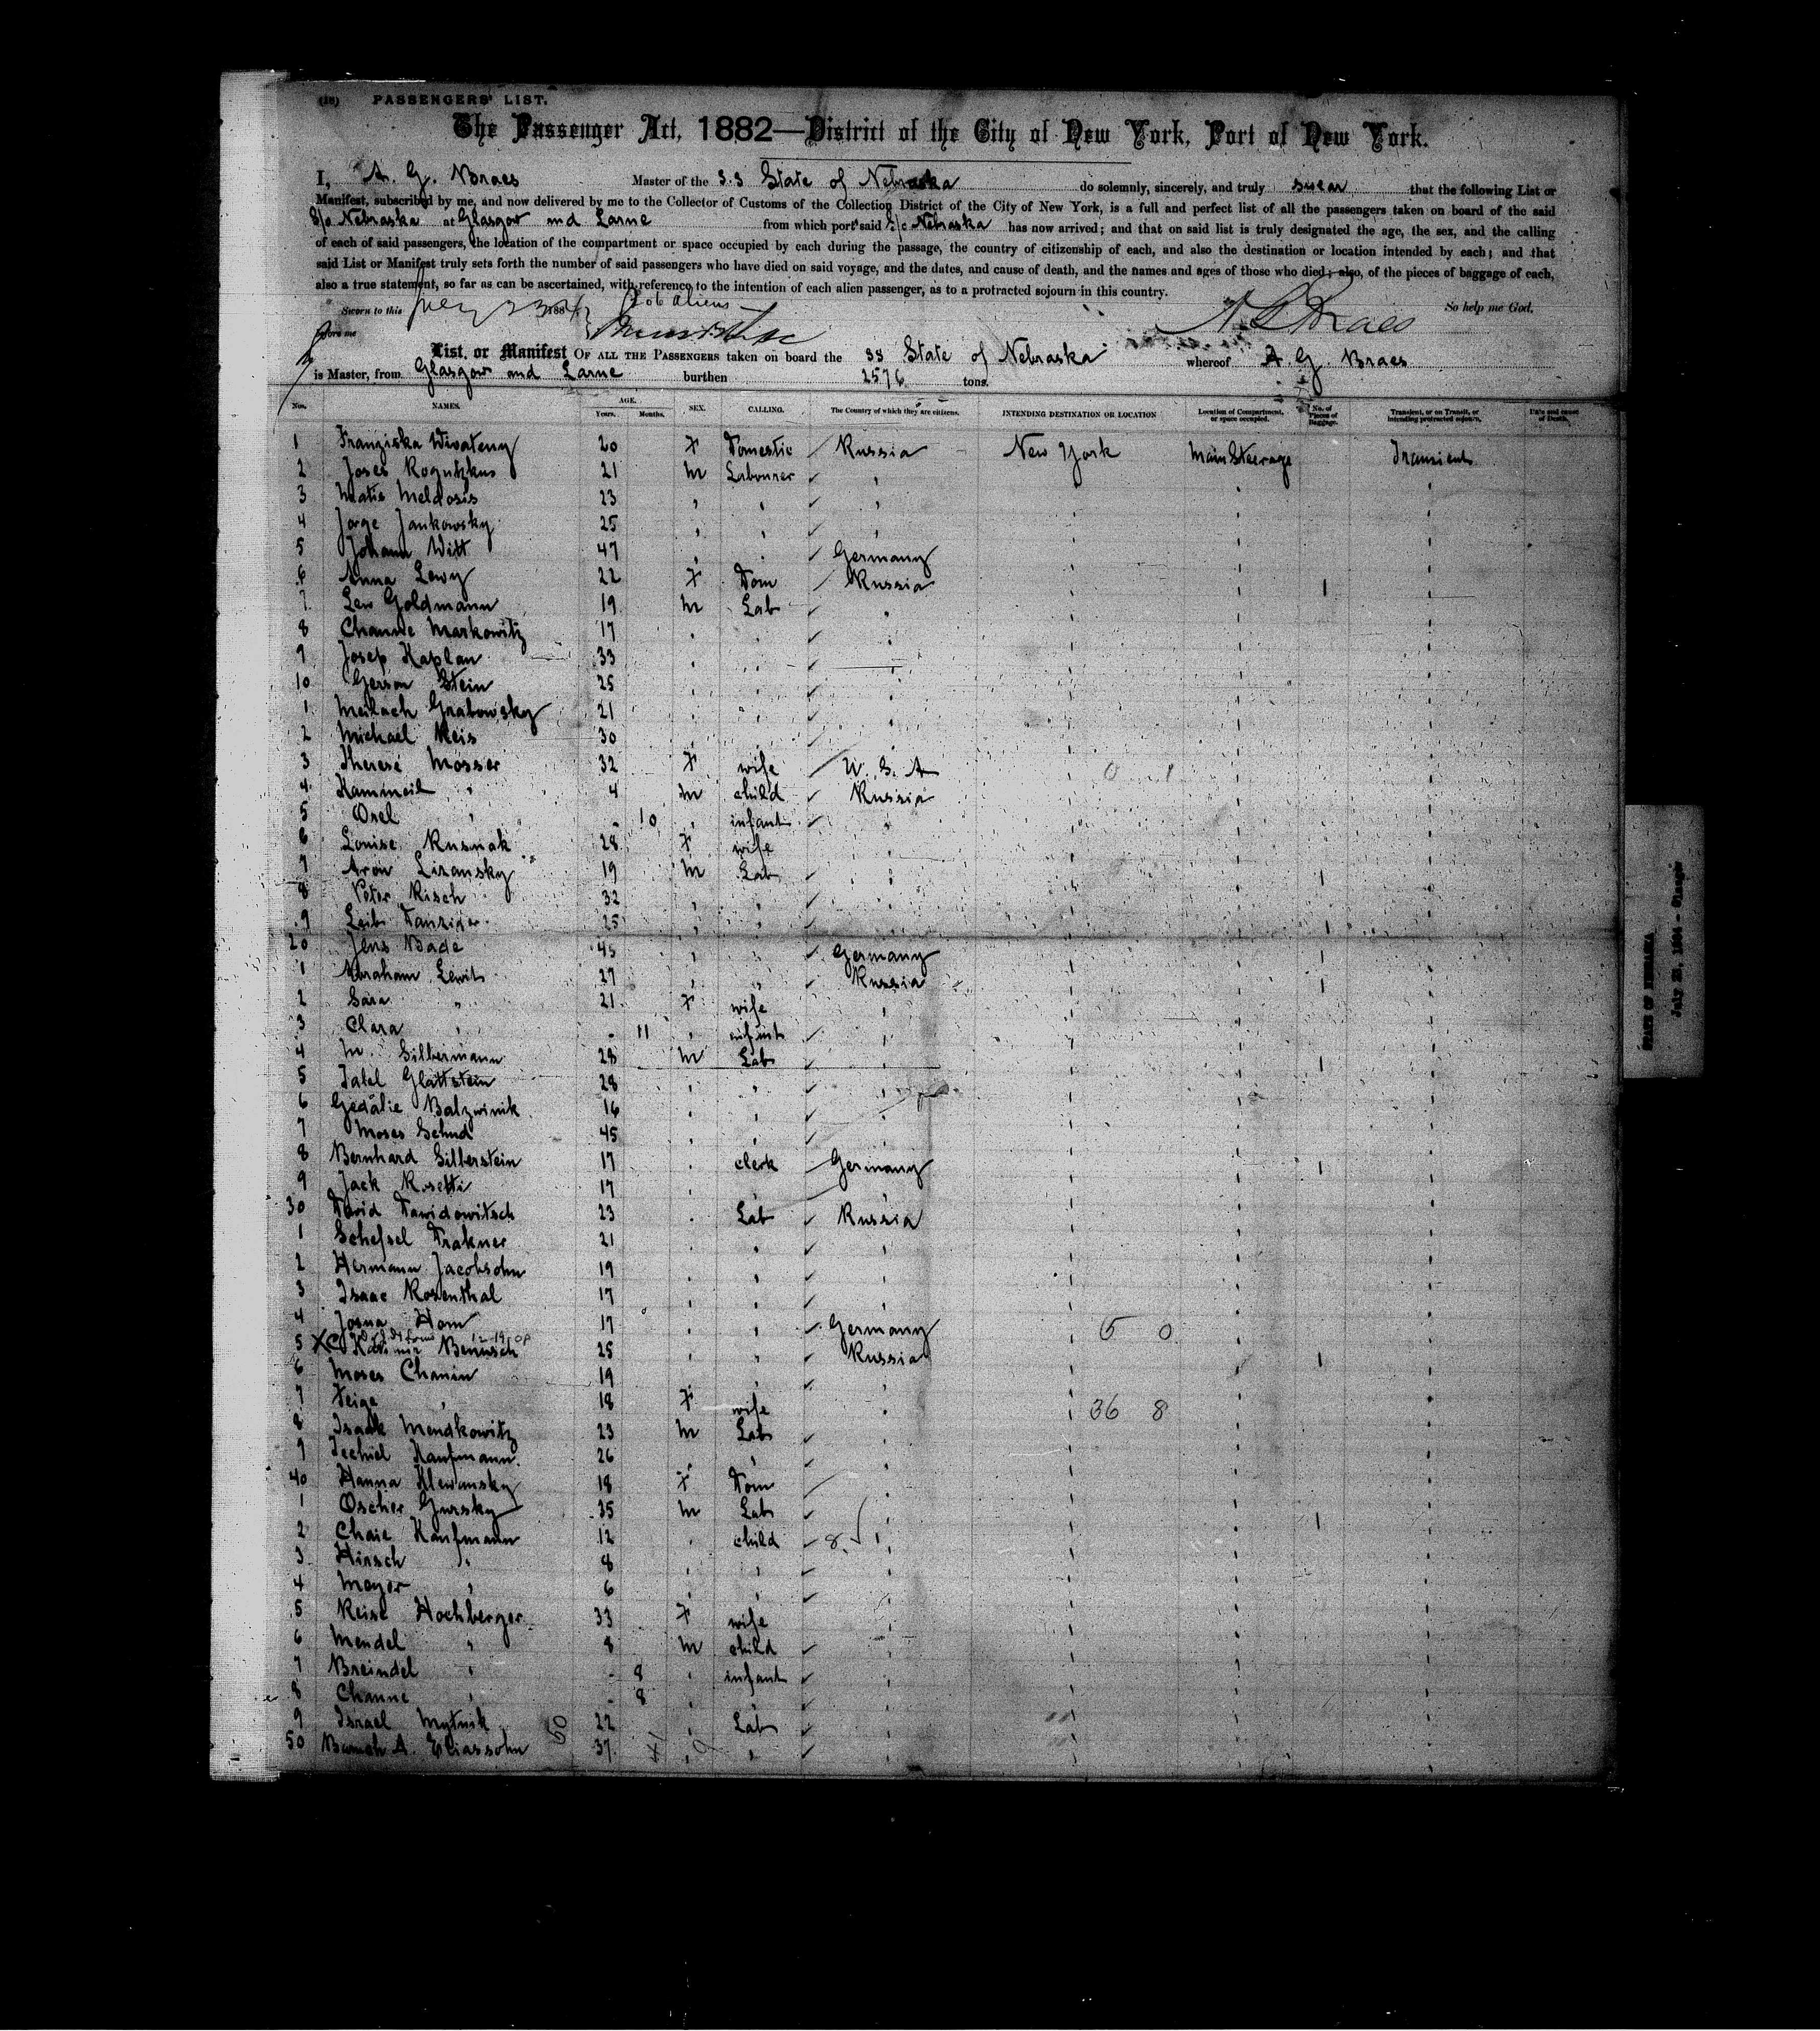 (18) PASSENGERS' LIST.
The Passenger Act, 1882—District of the City of New York, Port of New York.
I, A. G. Braes Master of the S.S State of Nebraska do solemnly, sincerely, and truly swear that the following List or
Manifest, subscribed by me, and now delivered by me to the Collector of Customs of the Collection District of the City of New York, is a full and perfect list of all the passengers taken on board of the said
S/s Nebraska at Glasgow and Larne from which port said S/s Nebraska has now arrived; and that on said list is truly designated the age, the sex, and the calling
of each of said passengers, the location of the compartment or space occupied by each during the passage, the country of citizenship of each, and also the destination or location intended by each; and that
said List or Manifest truly sets forth the number of said passengers who have died on said voyage, and the dates, and cause of death, and the names and ages of those who died; also, of the pieces of baggage of each,
also a true statement, so far as can be ascertained, with reference to the intention of each alien passenger, as to a protracted sojourn in this country.
Sworn to this July 23 1884 aliens A G Braes So help me God.
before me
List, or Manifest OF ALL THE PASSENGERS taken on board the SS State of Nebraska whereof A G. Braes
is Master, from Glasgow and Larne burthen 2576 tons.
Nos. NAMES. AGE. Years. Months. SEX. CALLING. The Country of which they are citizens. INTENDING DESTINATION OR LOCATION Location of Compartment, or space occupied. No. of Pieces of Baggage. Transient, or on Transit, or intending protracted sojourn. Date and cause of Death.
1 Franziska Wivateny 20 F Domestic Russia New York Main Steerage Transient
2 Joses Rogutzkus 21 M Labourer "
3 Matis Meldosis 23 " " "
4 Jorge Jankowsky 25 " " "
5 Johann Witt 47 " " Germany
6 Anna Lewy 22 F Dom Russia 1
7 Lew Goldmann 19 M Lab "
8 Channe Markowitz 17 " " "
9 Josep Kaplan 33 " " "
10 Gerson Stein 25 " " "
1 Meilach Grabowsky 21 " " "
2 Michael Reis 30 " " "
3 Therese Mosser 32 F wife U. S. A 0 1
4 Kammeil " 4 M child Russia
5 Orel " - 10 " infant "
6 Louise Rusnak 28 F wife "
7 Aron Lizansky 19 M Lab " 1
8 Peter Risch 32 " " "
9 Leib Danziger 25 " " " 1
20 Jens Bade 45 " " Germany 1
1 Abraham Lewit 27 " " Russia 1
2 Sara " 21 F wife "
3 Clara " - 11 " infant "
4 M. Silbermann 28 M Lab " 1
5 Tatel Glattstein 28 " " "
6 Gedalie Balzwinik 16 " " "
7 Moses Schud 45 " " "
8 Bernhard Silberstein 17 " clerk Germany 1
9 Jack Rosetti 17 " " "
30 David Dawidowitsch 23 " Lab Russia
1 Schefsel Drakner 21 " " "
2 Hermann Jacobsohn 19 " " "
3 Isaac Rosenthal 17 " " "
4 Josua Horn 17 " " Germany 5 0
5 XC Kasimir Benusch 25 " " Russia 1
6 Moses Chanin 19 " " "
7 Feige " 18 F wife " 36 8
8 Isaak Mendkowitz 23 M Lab "
9 Jechiel Kaufmann 26 " " "
40 Hanna Klewansky 18 F Dom "
1 Oscher Gursky 35 M Lab " 1
2 Chaie Kaufmann 12 " child 8 "
3 Hirsch " 8 " " "
4 Meyer " 6 " " "
5 Reise Hochberger 33 F wife "
6 Mendel " 8 M child "
7 Breindel " - 8 " infant "
8 Channe " - 8 " " "
9 Israel Mytnik 22 " Lab "
50 A. Eliassohn 37 " " "
50 41 9
STATE OF NEBRASKA
July 23, 1884 - Glasgow